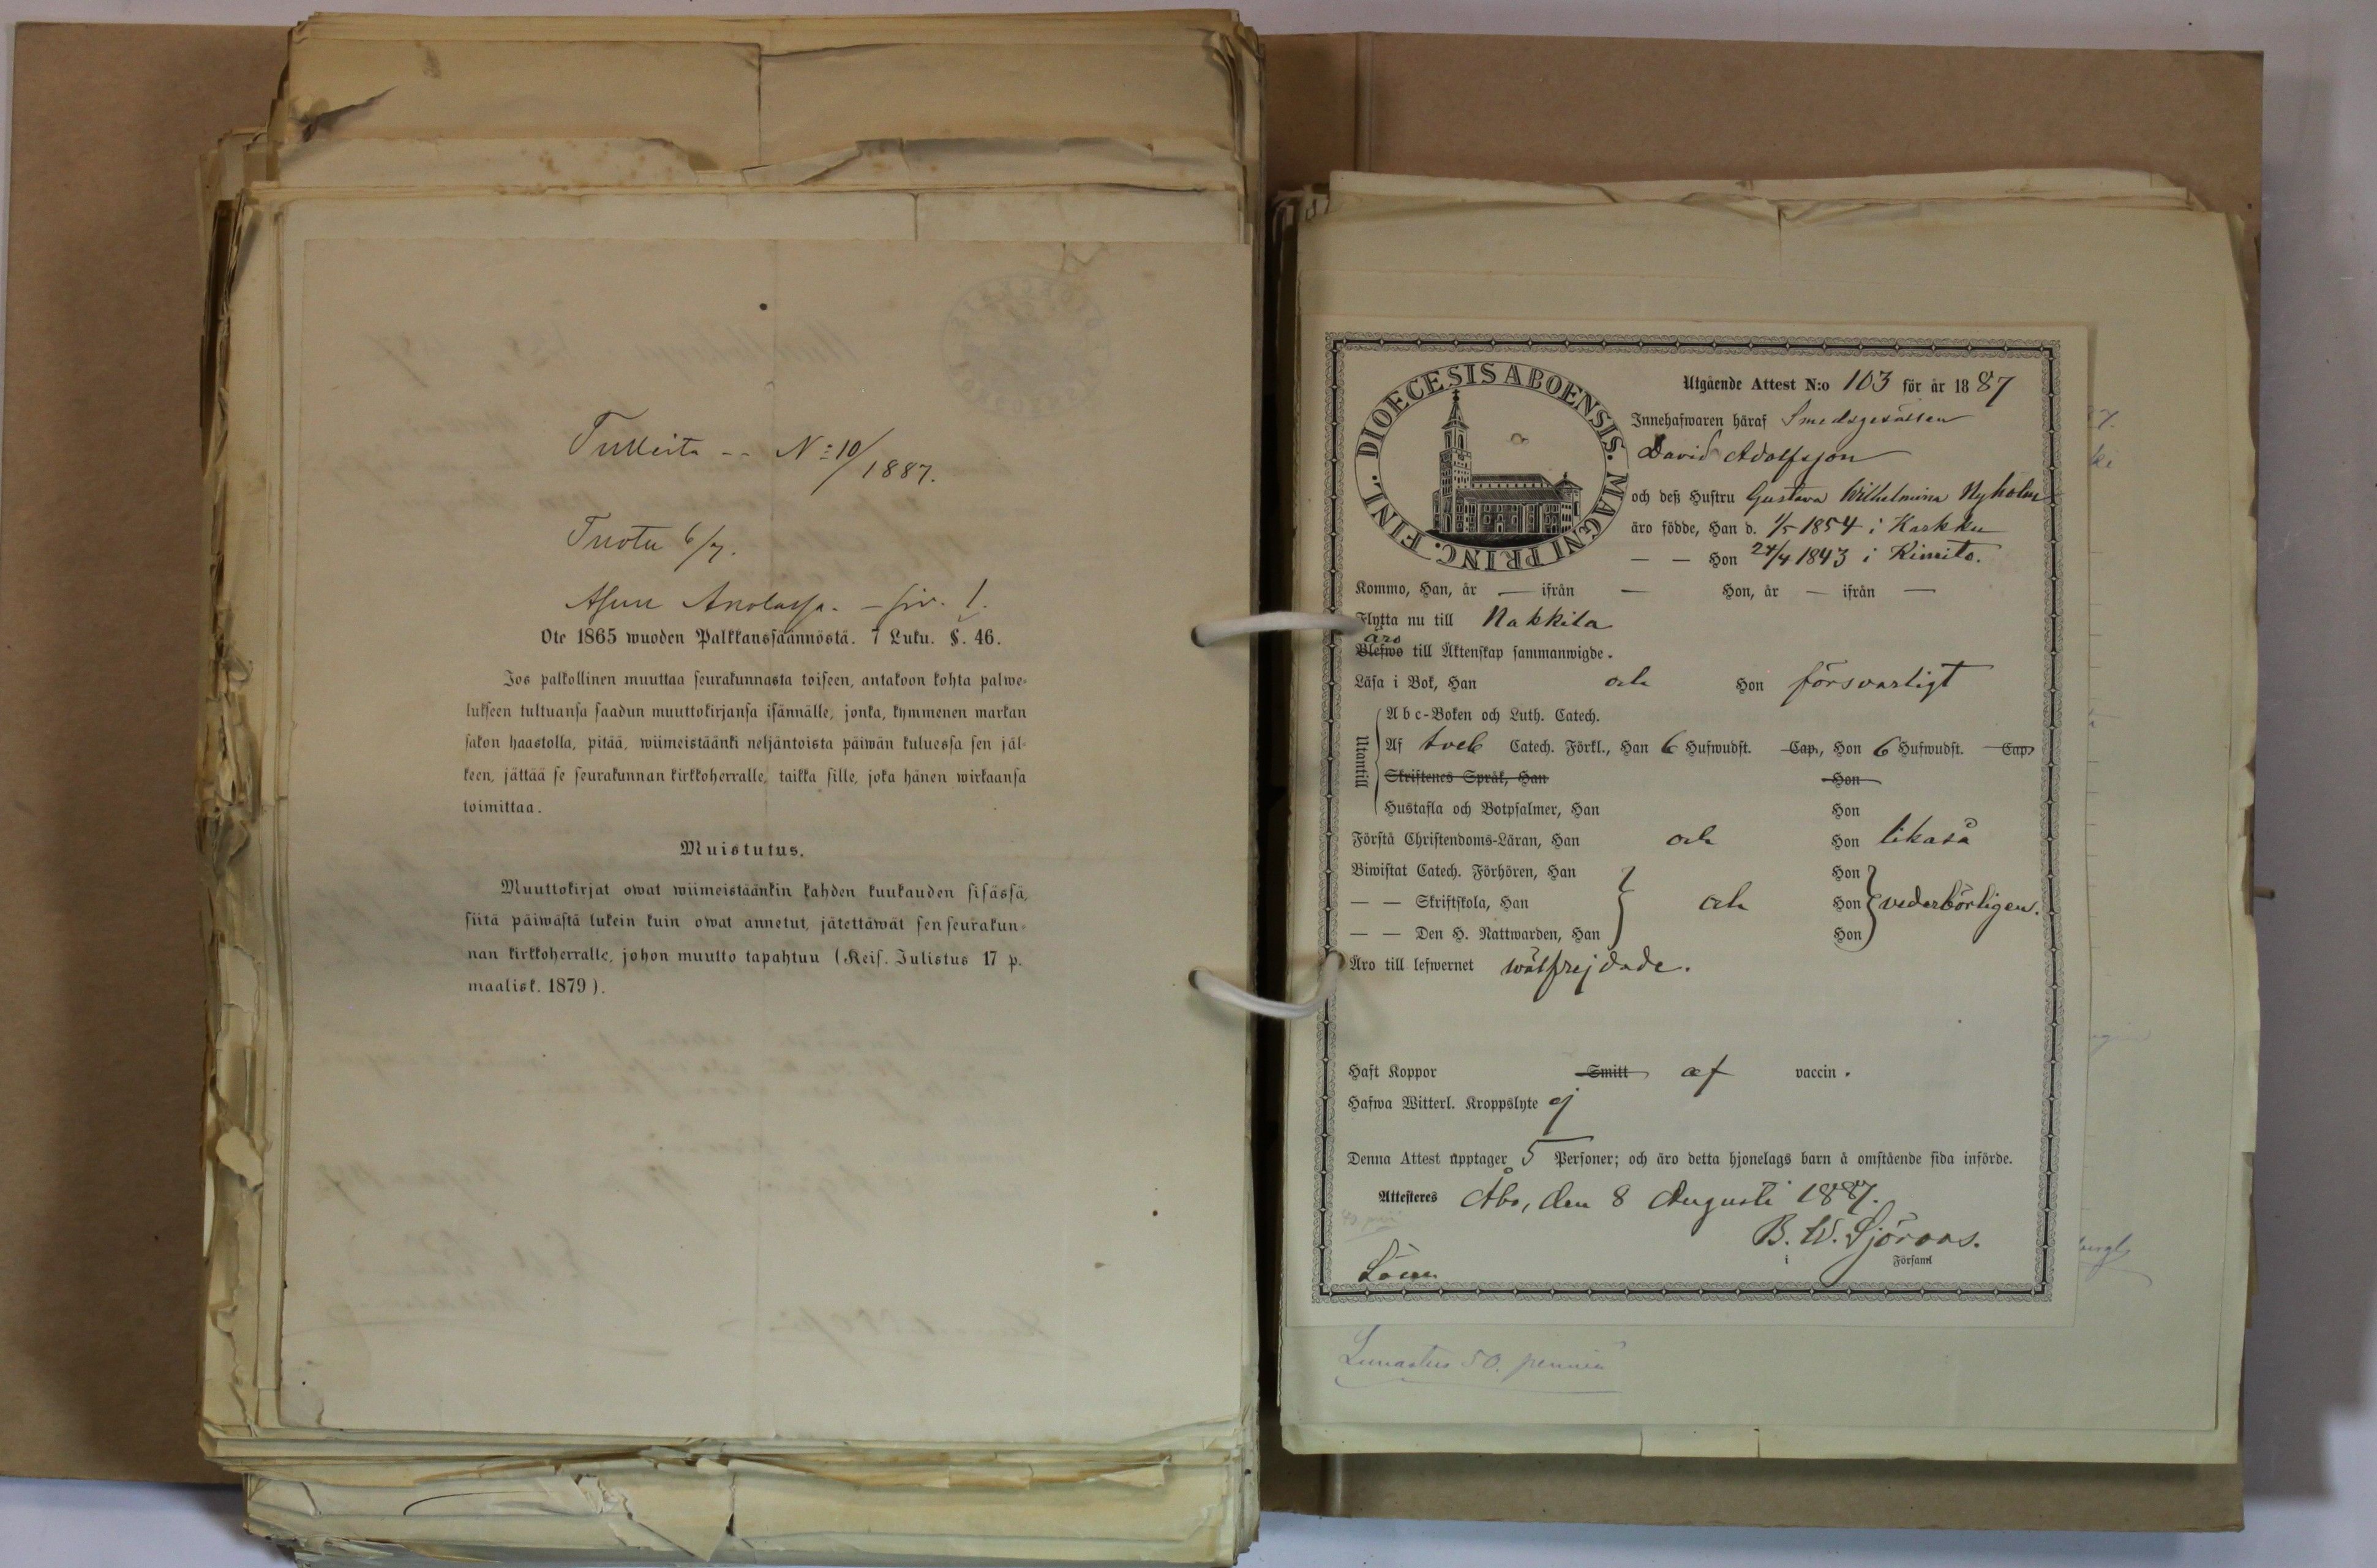 Tulleita -- N:10/1887.
Tuotu 6/7.
Asuu Anolassa. – siv. 1.
Ote 1865 wuoden Palkkanssäännöstä. 7 Luku. §. 46.
Jos palkollinen muuttaa seurakunnasta toiseen, antakoon kohta palwe-
lukseen tultuansa saadun muuttokirjansa isännälle, jonka, kymmenen markan
sakon haastolla, pitää, wiimeistäänki neljäntoista päiwän kuluessa sen jäl-
keen, jättää se seurakunnan kirkkoherralle, taikka sille, joka hänen wirkaansa
toimittaa.
Muistutus.
Muuttokirjat owat wiimeistäänkin kahden kuukauden sisässä,
siitä päiwästä lukein kuin owat annetut, jätettäwät sen seurakun-
nan kirkkoherralle, johon muutto tapahtuu (Keis. Julistus 17 p.
maalisk. 1879).
DIOECESIS ABOENSIS. MAGNI PRINC. FINL.
Utgående Attest N:o 103 för år 1887
Innehafwaren häraf Smedsgesällen
David Adolfsson
och deß Hustru Gustava Wilhelmina Nyholm
äro födde, Han d. 1/5 1854 i Karkku
— — Hon 24/4 1843 i Kimito.
Kommo, Han, år — ifrån — Hon, år — ifrån —
Flytta nu till Nakkila
äro
Blefwo till Äktenskap sammanwigde.
Läsa i Bok, Han och Hon försvarligt
Utantill
Abc-Boken och Luth. Catech.
Af Catech. Förkl., Han 6 Hufwudst. Cap., Hon 6 Hufwudst. Cap.
Skriftenes Språk, Han Hon
Hustafla och Botpsalmer, Han Hon
Förstå Christendoms-Läran, Han och Hon likaså
Biwistat Catech. Förhören, Han Hon
— — Skriftskola, Han och Hon vederbörligen.
— — Den H. Nattwarden, Han Hon
Äro till lefwernet wälfrejdade.
Haft Koppor Smitt af vaccin.
Hafwa Witterl. Kroppslyte ej
Denna Attest upptager 5 Personer; och äro detta hjonelags barn å omstående sida införde.
Attesteres Åbo, den 8 Augusti 1887.
B. W. Sjöroos.
i Församl
Lösen
Lunastus 50. penniä